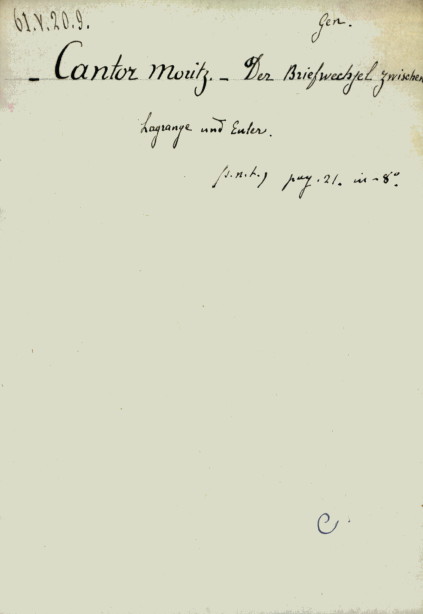 61.V.20.9.
Gen.
- Cantor Moritz. - Der Briefwechsel zwischen
Lagrange und Euler.
(s.n.t.) pag. 21. in-8°.
C